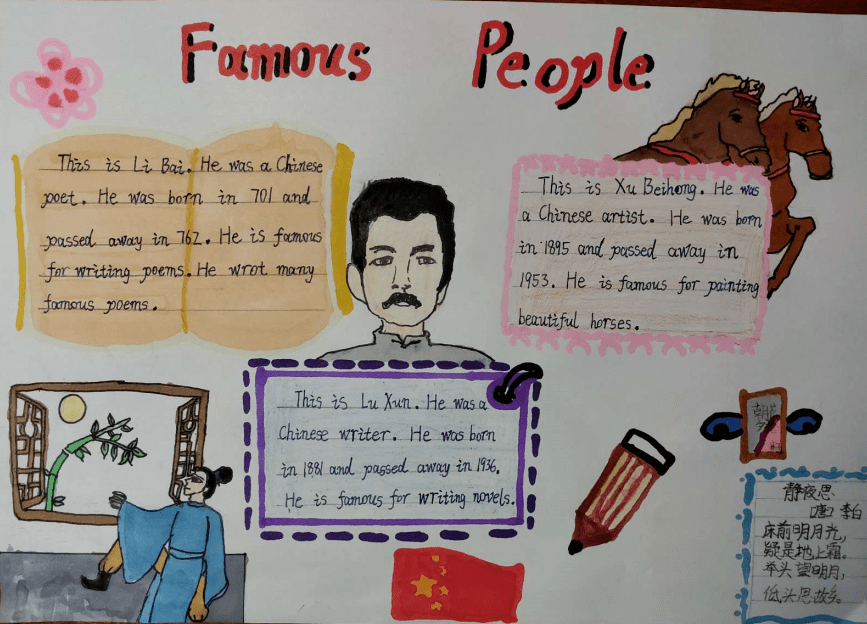 Famous People
This is Li Bai. He was a Chinese
poet. He was born in 701 and
passed away in 762. He is famous
for writing poems. He wrot many
famous poems.
This is Xu Beihong. He was
a Chinese artist. He was born
in 1895 and passed away in
1953. He is famous for painting
beautiful horses.
This is Lu Xun. He was a
Chinese writer. He was born
in 1881 and passed away in 1936.
He is famous for writing novels.
静夜思
[唐] 李白
床前明月光,
疑是地上霜。
举头望明月,
低头思故乡。